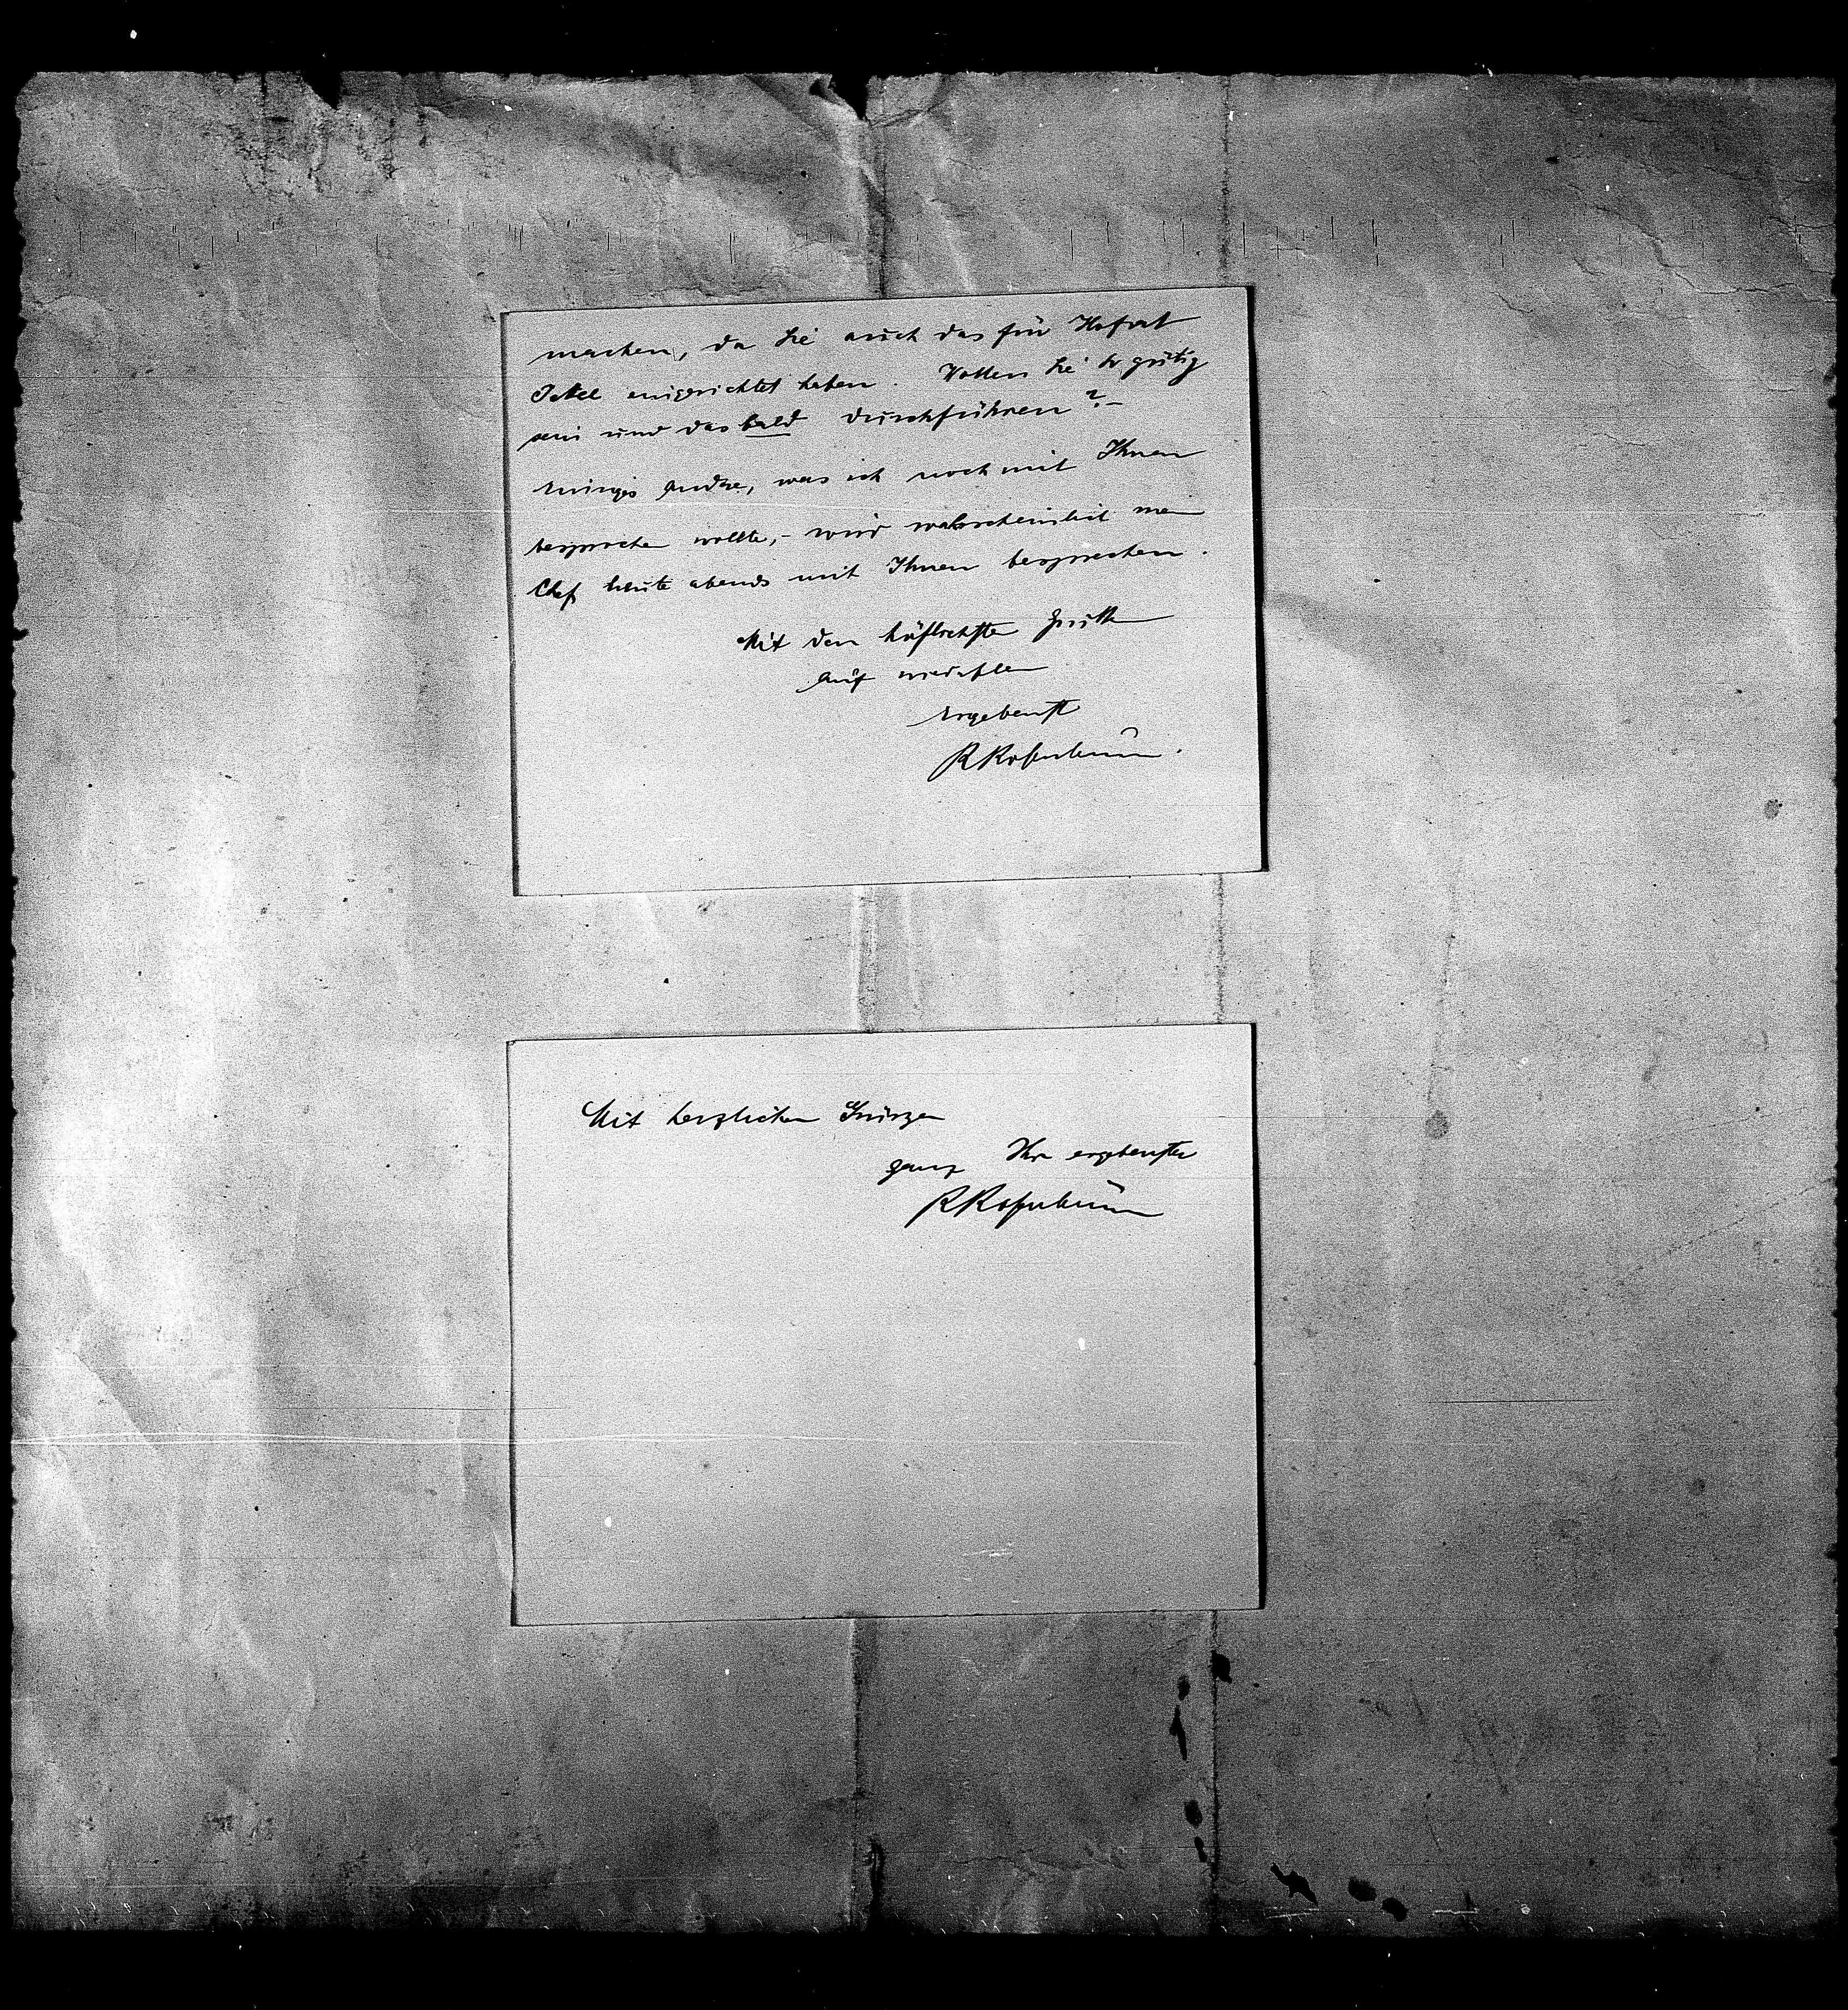 machen, da Sie auch das für Hofrat
eingerichtet haben. Wollen Sie so gütig
sein und das bald durchführen?-
Einiges Andre, was ich noch mit Ihnen
besprechen wollte,- wird wahrscheinlich mein
Chef heute abends mit Ihnen besprechen.
Mit den höflichsten Grüßen
auf wiedersehen
Ergebenst
RRosenbaum.
Mit herzlichen Grüszen
ganz Ihr ergebenster
RRosenbaum